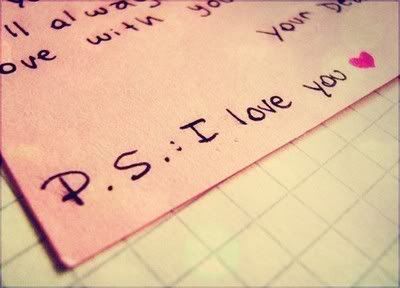 ll alway
ove with you
Your Dea
P.S.: I love you ♥